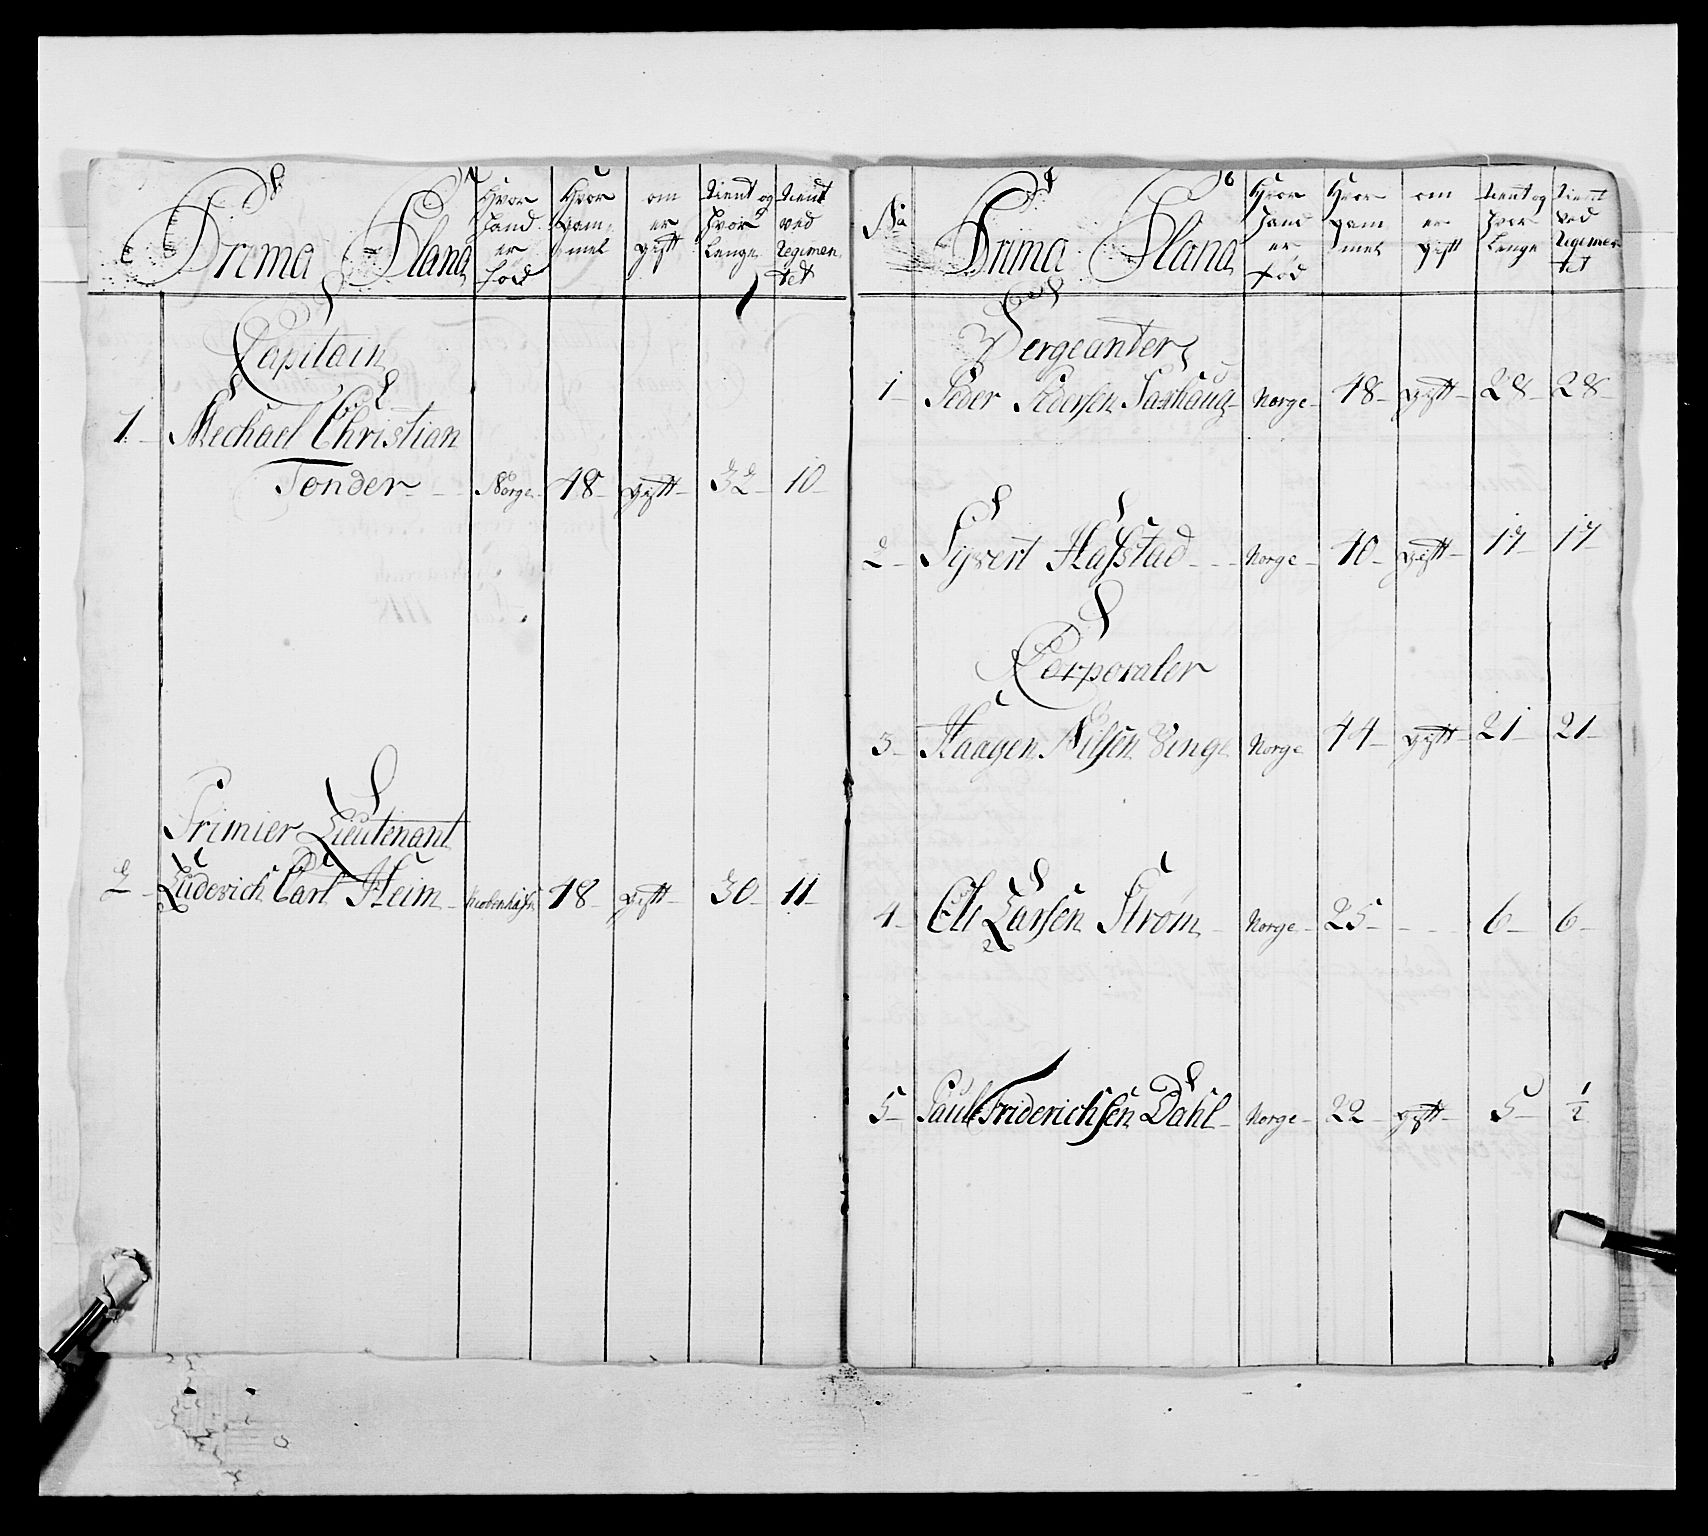 Prima Plana
Hvor
Hand
er
föd
Hvor
gam
mel
om
er
gift
tient og
hvor
Lenge
tient
ved
Regimen
tet
Capitain
1 Mechael Christian
Tonder Norge 48 gift 32 10
Primier Lieutenant
2 Ludevich Carl Heim 48 gift 30 11
No
Prima Plana
Hvor
Hand
er
föd
Hvor
gam
mel
om
er
gift
tient og
hvor
Lenge
tient
ved
Regimen
tet
Sergeanter
1 Peder Pedersen Saxhaug Norge 48 gift 28 28
2 Syvert Hafstad Norge 40 gift 17 17
Corporaler
3 Haagen Nilsen Vinge Norge 44 gift 21 21
4 Ole Larsen Strøm Norge 25 6 6
5 Paul Friderichsen Dahl Norge 22 gift 5 1/2